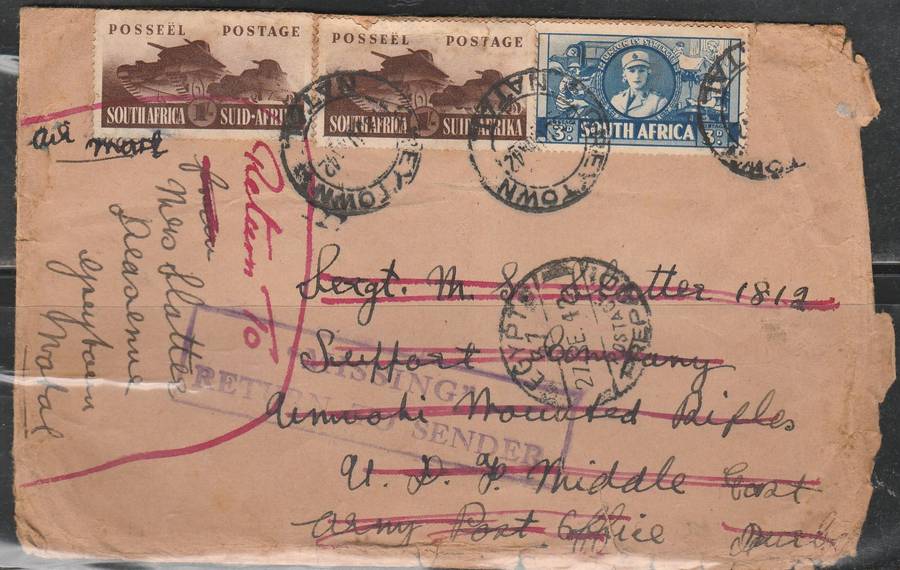 POSSEËL POSTAGE
SOUTH AFRICA 1/- SUID-AFRIKA
POSSEËL POSTAGE
SOUTH AFRICA 1/- SUID-AFRIKA
3D. SOUTH AFRICA 3D.
GREYTOWN NATAL
GREYTOWN NATAL
air mail
Return to
from
Mrs Slatter
Greytown
Natal
EGYPT 27 SE 42
MISSING
RETURN TO SENDER
Sergt. M. S. Slatter 1812
Support Company
Umvoti Mounted Rifles
U. D. F. Middle East
Army Post Office